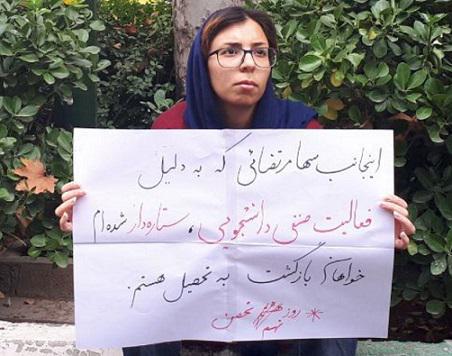 اینجانب سها مرتضائی که به دلیل
فعالیت صنفی دانشجویی، ستاره‌دار شده‌ام
خواهان بازگشت به تحصیل هستم.
* روز تحصن
نهم